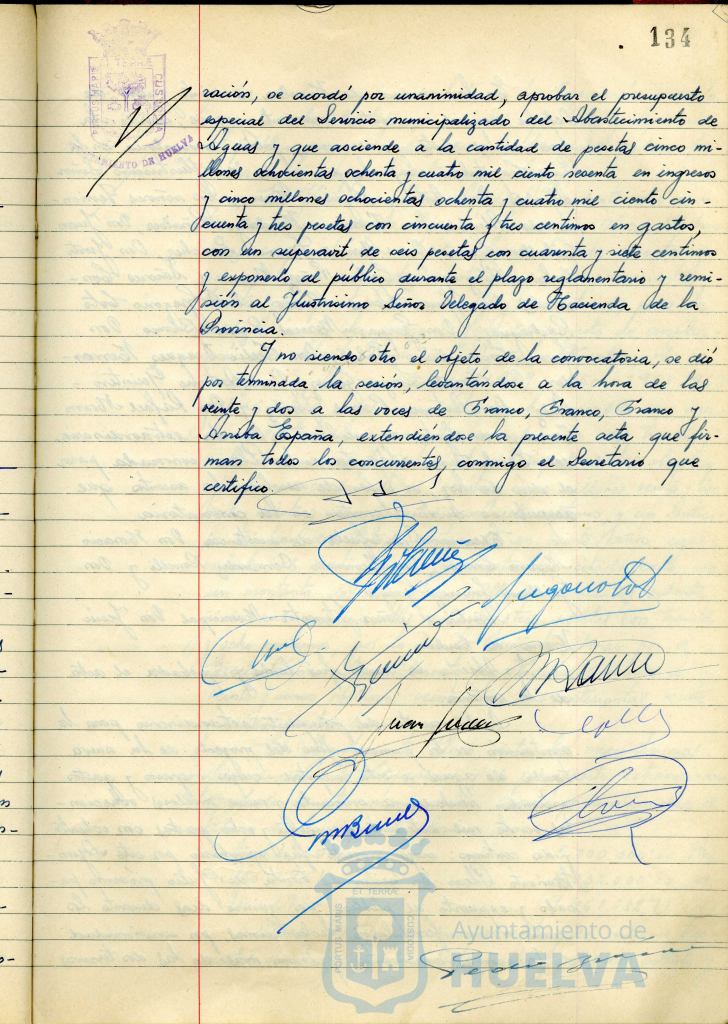 134
PORTUS MARIS
ET TERRÆ
CUSTODIA
DE HUELVA
ración, se acordó por unanimidad, aprobar el presupuesto
especial del Servicio municipalizado del Abastecimiento de
Aguas y que asciende a la cantidad de pesetas cinco mi-
llones ochocientas ochenta y cuatro mil ciento sesenta en ingresos
y cinco millones ochocientas ochenta y cuatro mil ciento cin-
cuenta y tres pesetas con cincuenta y tres centimos en gastos,
con un superavit de seis pesetas con cuarenta y siete centimos
y exponerlo al público durante el plazo reglamentario y remi-
sión al Ilustrisimo Señor Delegado de Hacienda de la
Provincia.
Y no siendo otro el objeto de la convocatoria, se dió
por terminada la sesión, levantándose a la hora de las
veinte y dos a las voces de Franco, Franco, Franco y
Arriba España, extendiéndose la presente acta que fir-
man todos los concurrentes, conmigo el Secretario que
certifico.
Juan
PORTUS MARIS
ET TERRÆ
CUSTODIA
Ayuntamiento de
HUELVA
Pedro